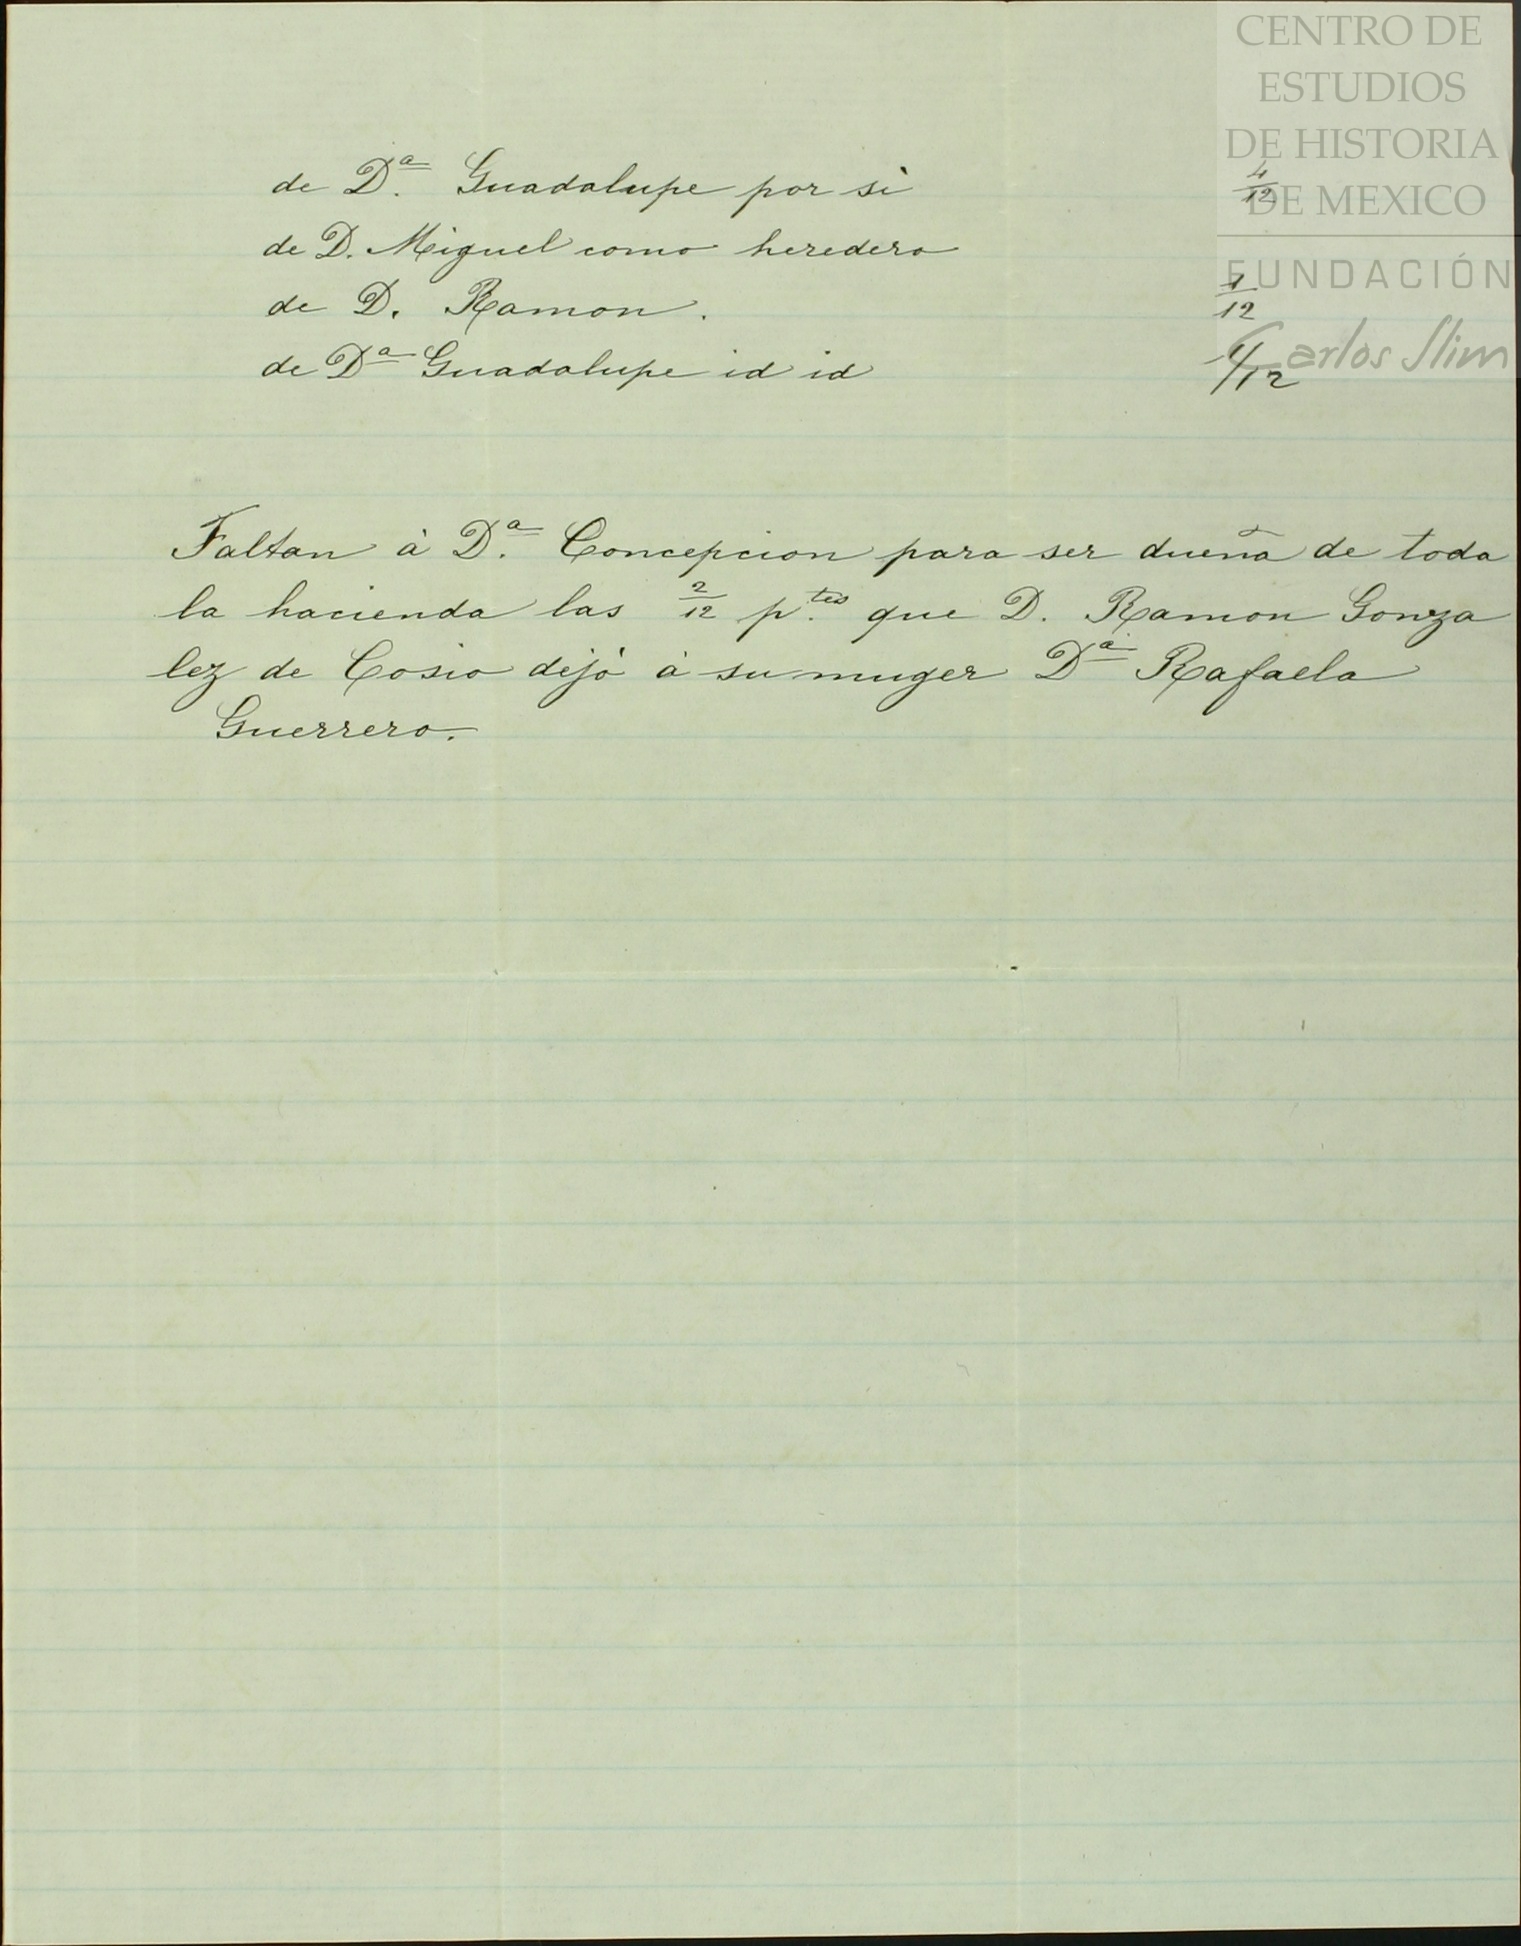 CENTRO DE
ESTUDIOS
DE HISTORIA
DE MEXICO
FUNDACIÓN
Carlos Slim
de D.ª Guadalupe por si 4/12
de D. Miguel como heredero
de D. Ramon. 1/12
de Dª Guadalupe id id 1/12
Faltan à D.ª Concepcion para ser dueña de toda
la hacienda las 2/12 p.tes que D. Ramon Gonza
lez de Cosio dejó á su muger Dª Rafaela
Guerrero.